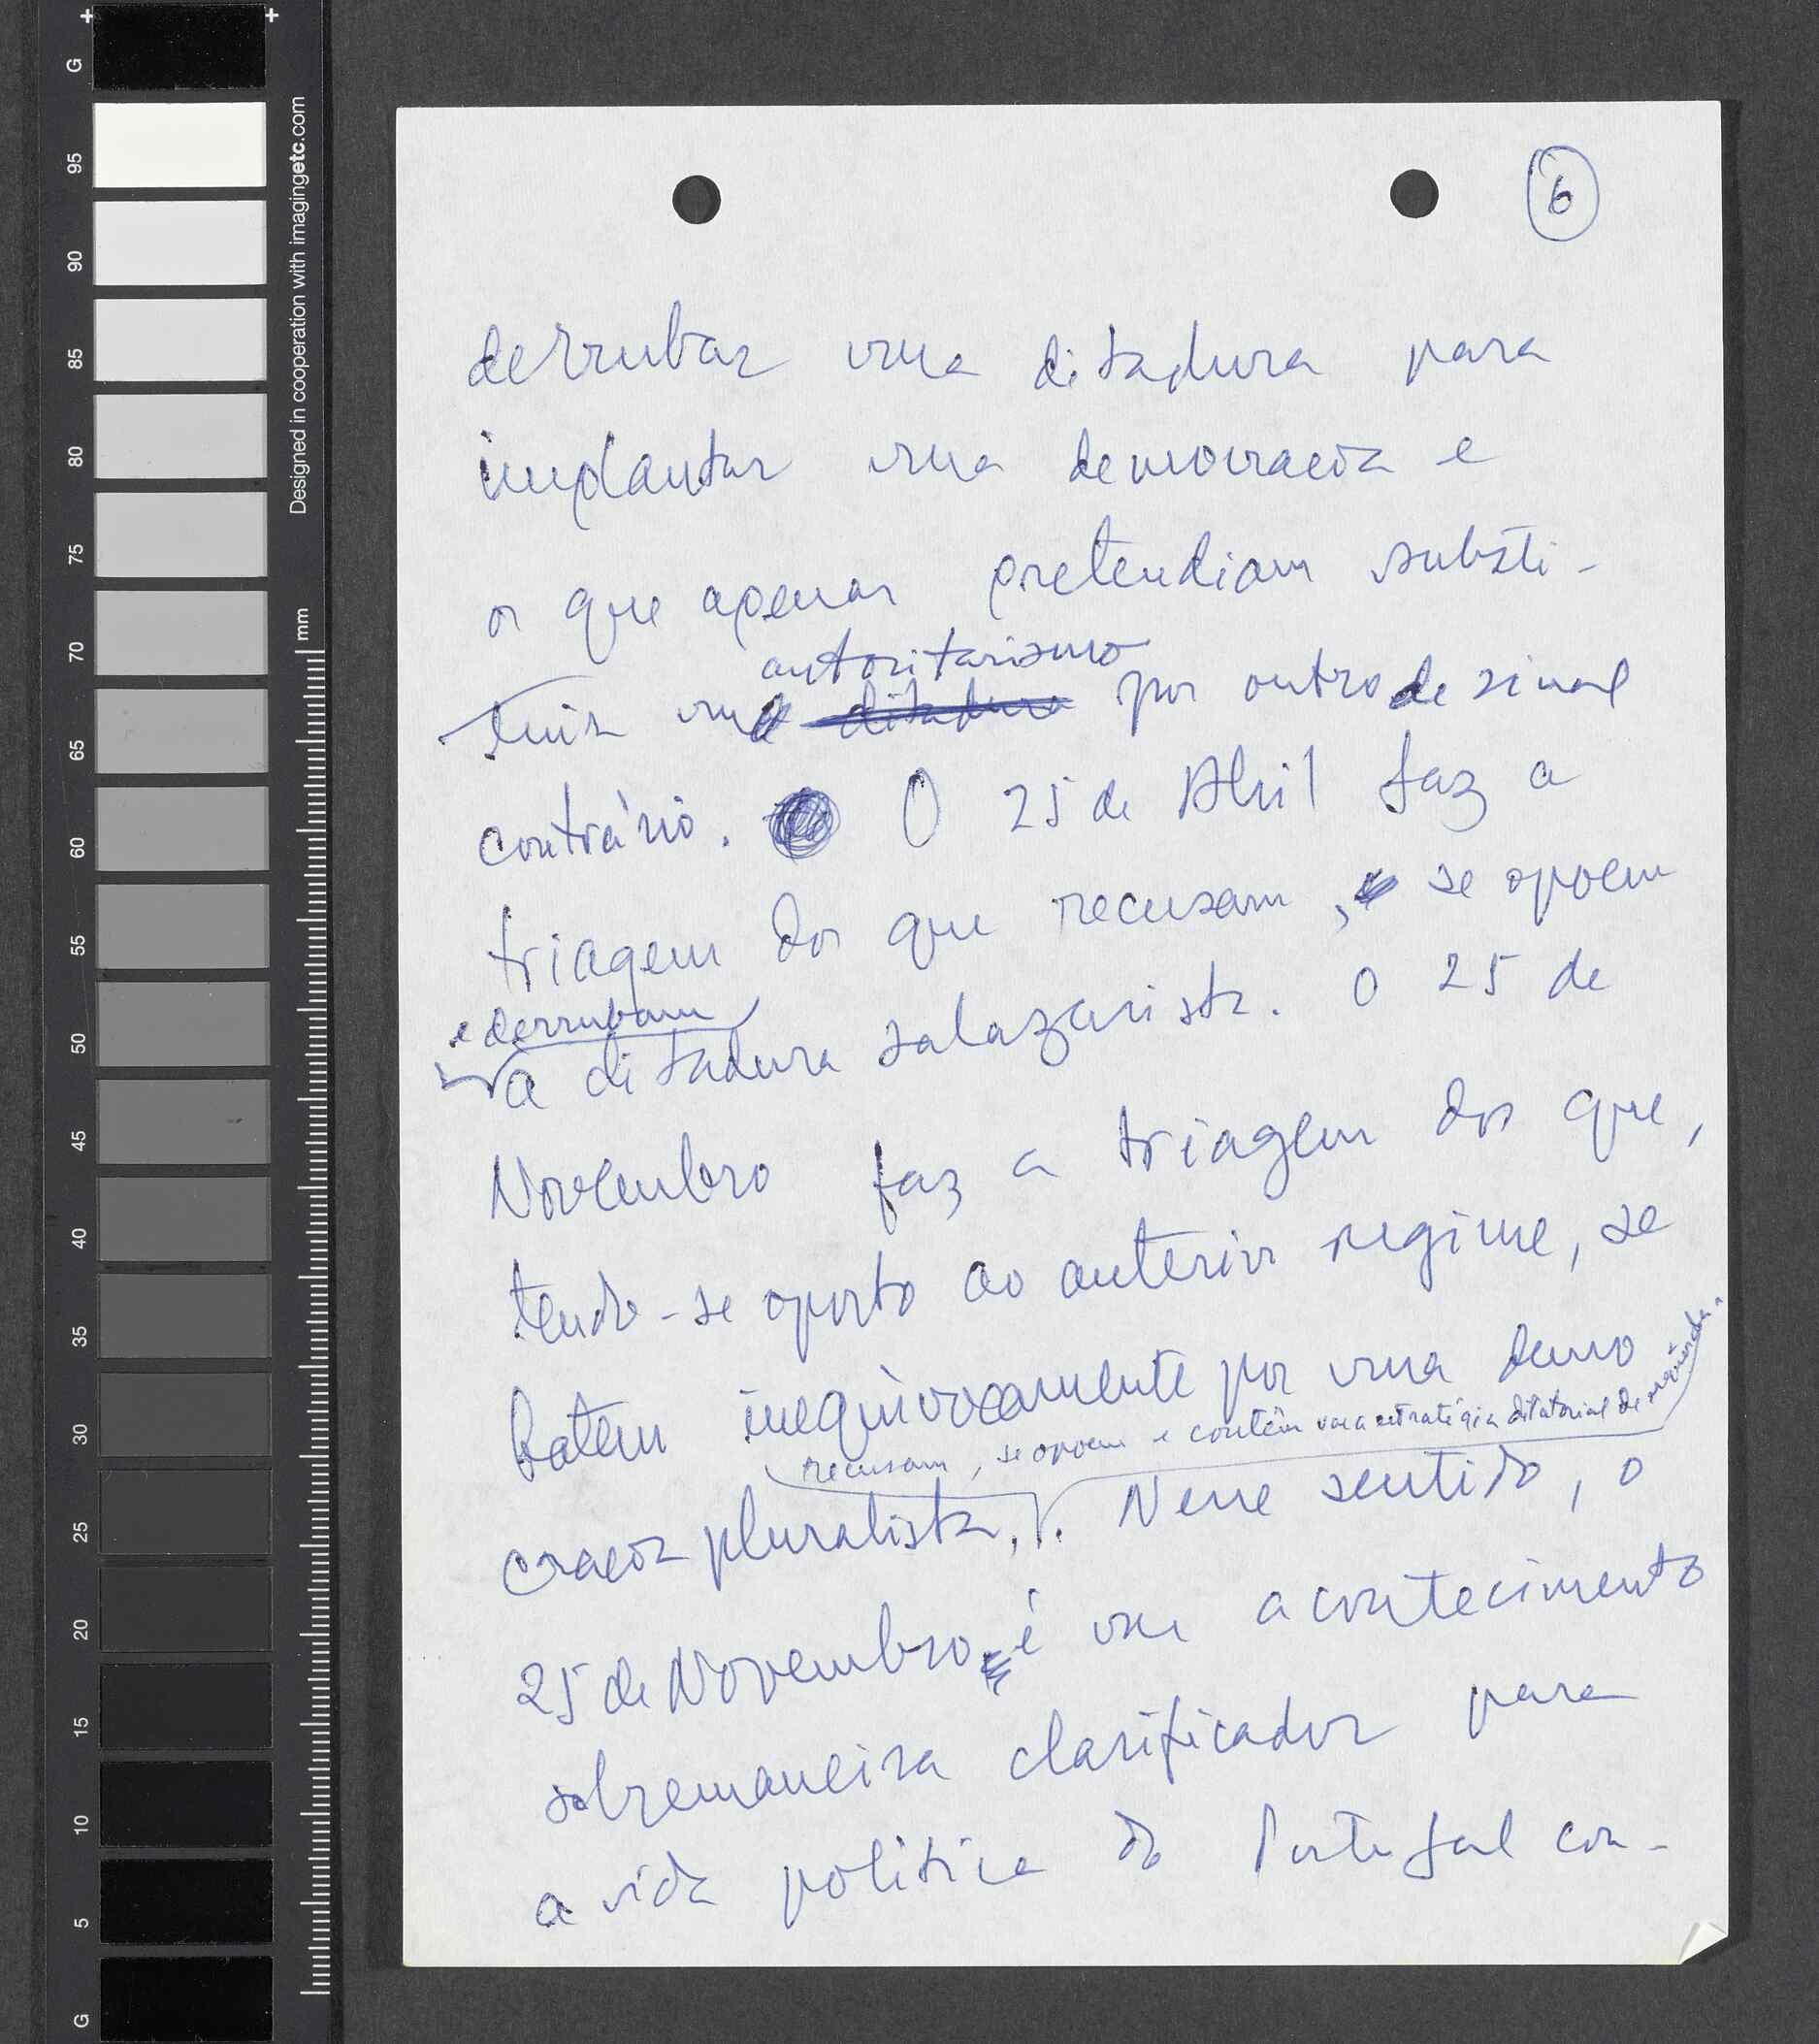 6
derrubar uma ditadura para
implantar uma democracia e
os que apenas pretendiam substi-
autoritarismo
tuir um ditadura por outro de sinal
contrário. O 25 de Abril faz a
triagem dos que recusam, se opoem
e derrubam
a ditadura salazarista. O 25 de
Novembro faz a triagem dos que,
tendo-se oposto ao anterior regime, se
batem inequivocamente por uma demo
recusam, se opoem e contêm uma estratégia ditatorial de esquerda.
cracia pluralista, . Nesse sentido, o
25 de Novembro é um acontecimento
sobremaneira clarificador para
a vida política do Portugal con-
G
95
90
85
80
75
70
65
60
55
50
45
40
35
30
25
20
15
10
5
G
Designed in cooperation with imagingetc.com
mm